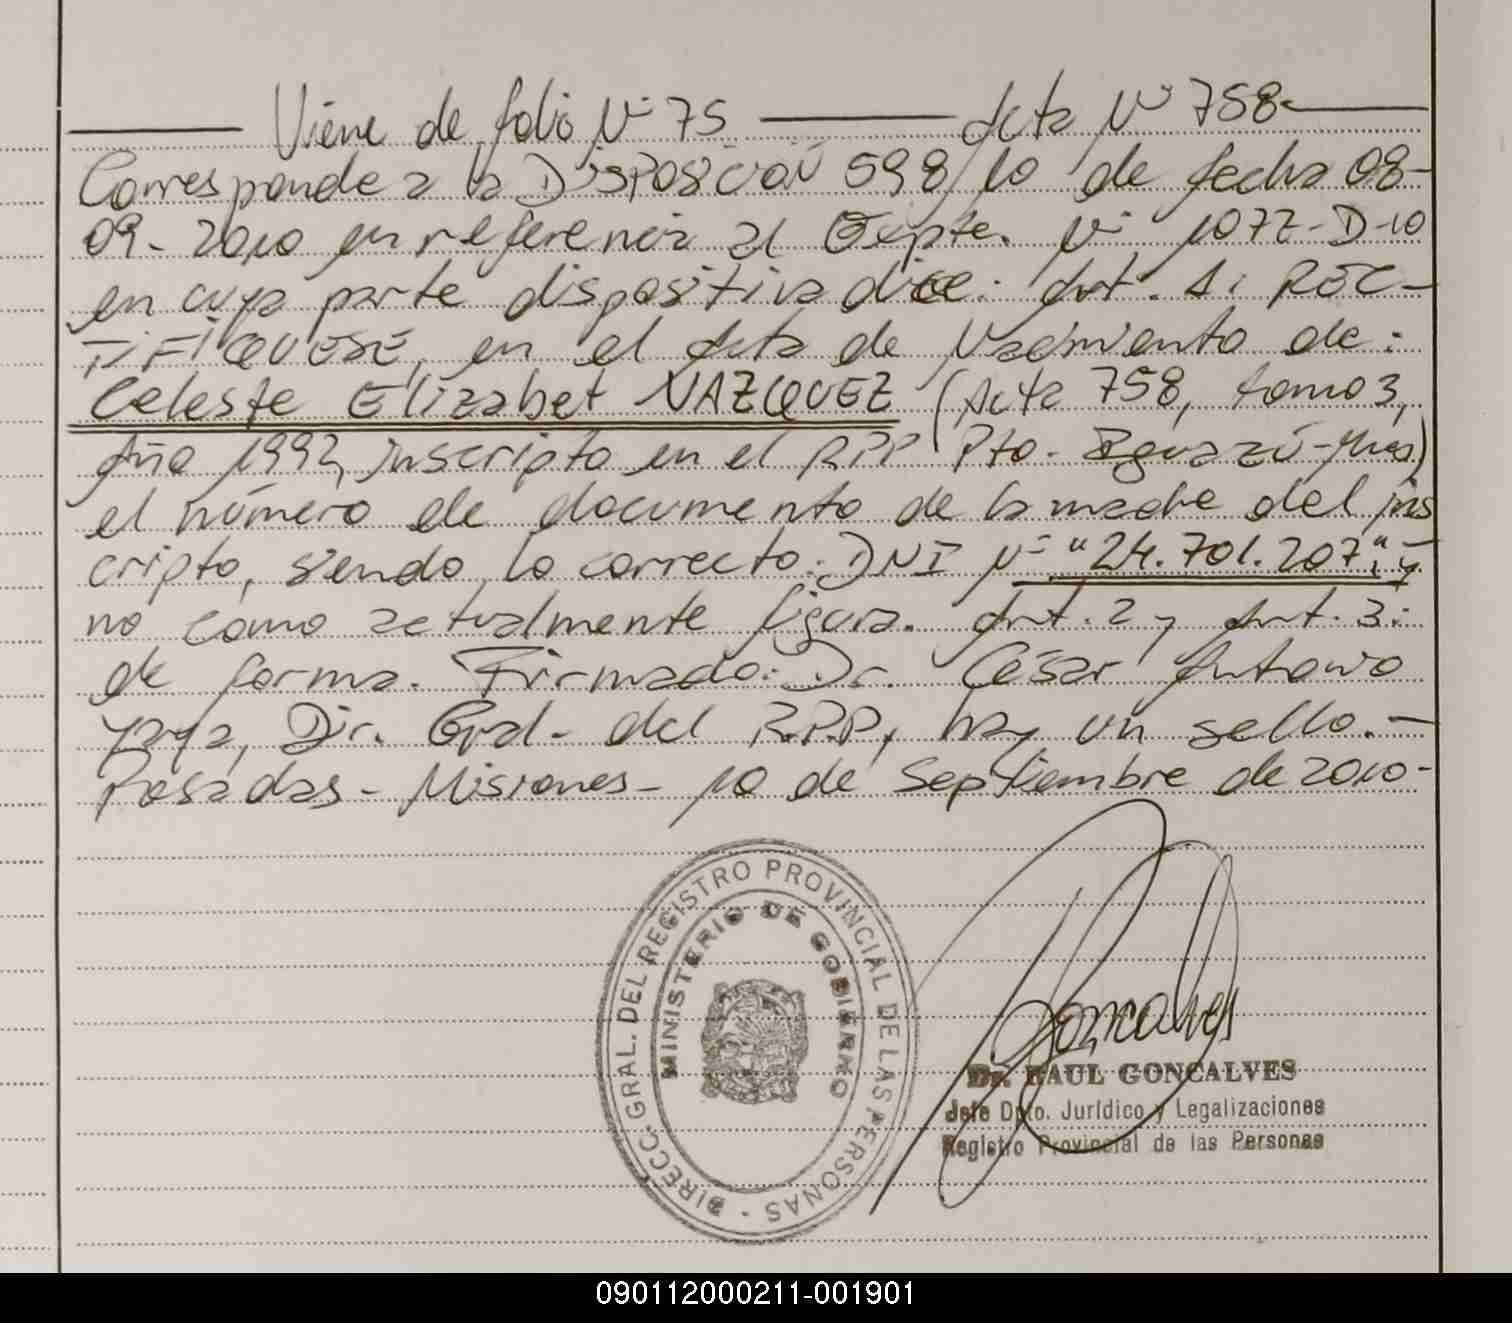 Viene de folio Nº 75 Acta Nº 758-
Corresponde a la DISPOSICIÓN 598/10 de fecha 08-
09-2010 en referencia al Expte. Nº 1077-D-10
en cuya parte dispositiva dice: Art. 1: REC-
TIFIQUESE, en el Acta de Nacimiento de:
Celeste Elizabet VAZQUEZ (Acta 758, tomo 3,
Año 1992, inscripto en el RPP Pto. Iguazú-Mnes)
el número de documento de la madre del ins
cripto, siendo lo correcto: DNI Nº "24.701.207", y
no como actualmente figura. Art. 2 y Art. 3:
de forma. Firmado: Dr. César Antonio
Yaya, Dir. Gral. del R.P.P, hay un sello.-
Posadas - Misiones - 10 de Septiembre de 2010-
DIRECC. GRAL. DEL REGISTRO PROVINCIAL DE LAS PERSONAS -
MINISTERIO DE GOBIERNO
Goncalves
Dr. RAUL GONCALVES
Jefe Dpto. Jurídico y Legalizaciones
Registro Provincial de las Personas
090112000211-001901